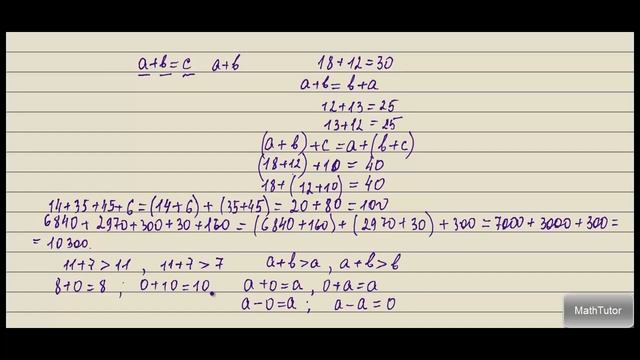 a+b=c a+b 18+12=30
a+b=b+a
12+13=25
13+12=25
(a+b)+c=a+(b+c)
(18+12)+10=40
18+(12+10)=40
14+35+45+6=(14+6)+(35+45)=20+80=100
6840+2970+300+30+160=(6840+160)+(2970+30)+300=7000+3000+300=
=10300.
11+7>11, 11+7>7 a+b>a, a+b>b
8+0=8; 0+10=10. a+0=a, 0+a=a
a-0=a; a-a=0
MathTutor